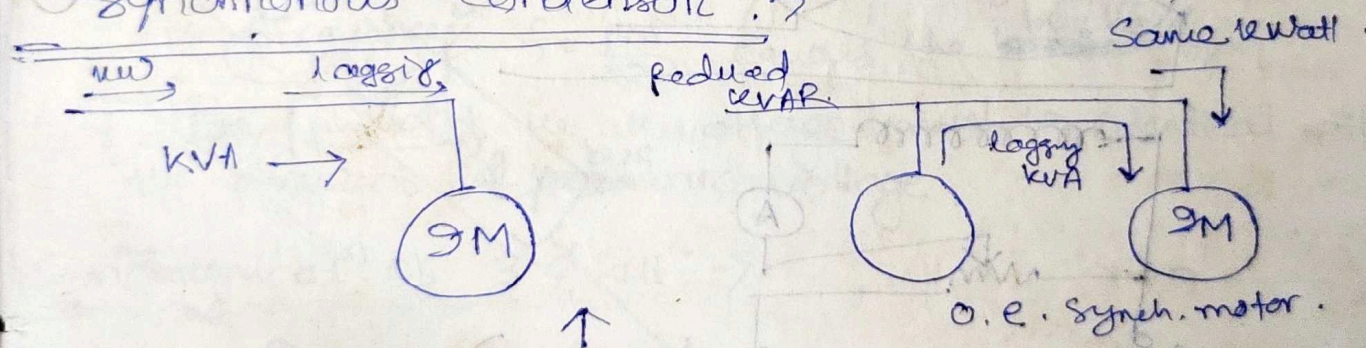 Synchronous Condensor :->
kW lagging
KVA
IM
reduced
KVAR
Same kwatt
lagging
KVA
IM
o.e. synch. motor.
A